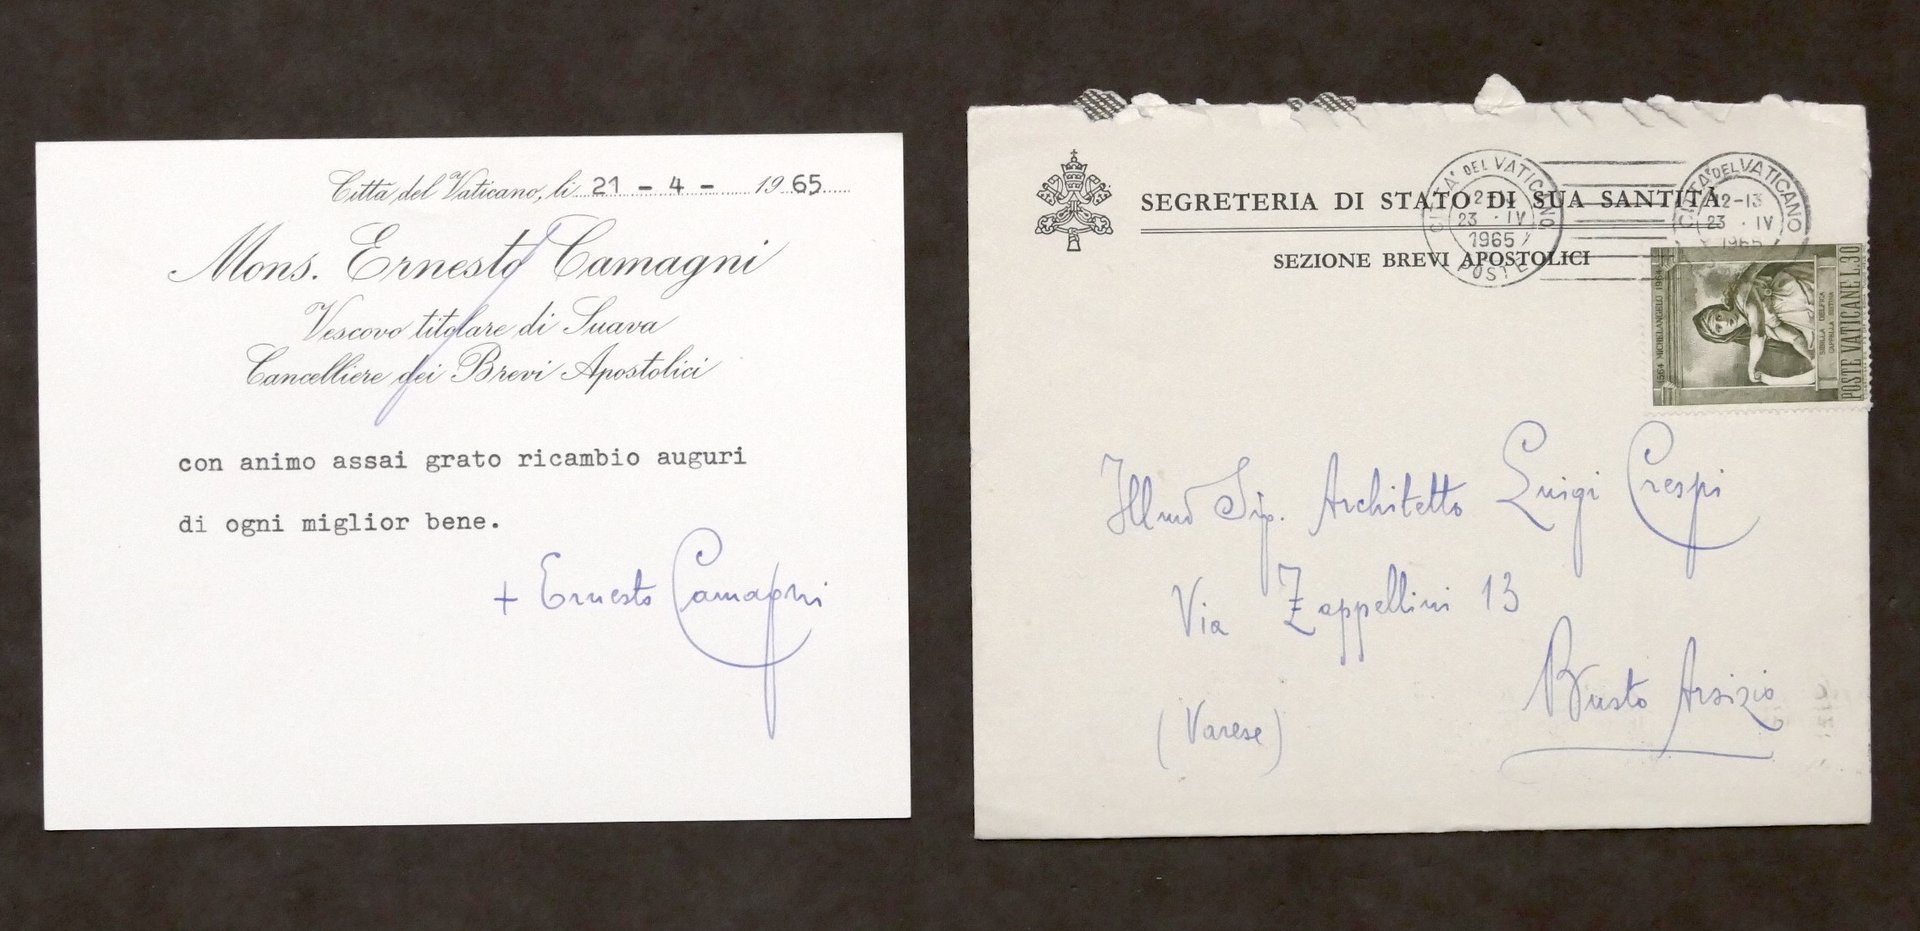 Città del Vaticano, li 21 - 4 - 1965
Mons. Ernesto Camagni
Vescovo titolare di Suava
Cancelliere dei Brevi Apostolici
con animo assai grato ricambio auguri
di ogni miglior bene.
+ Ernesto Camagni
SEGRETERIA DI STATO DI SUA SANTITÀ
SEZIONE BREVI APOSTOLICI
CITTA' DEL VATICANO
23 · IV
1965
POSTE
CITTA' DEL VATICANO
12-13
23 · IV
1965
1564 MICHELANGELO 1964
SIBILLA DELFICA
CAPPELLA SISTINA
POSTE VATICANE L.30
Ill.mo Sig. Architetto Luigi Crespi
Via Zappellini 13
Busto Arsizio
(Varese)